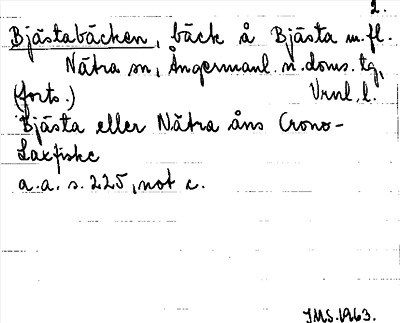 2.
Bjästabäcken, bäck å Bjästa m.fl.
Nätra sn, Ångermanl. n. doms. tg,
(forts.) Vrnl. l.
Bjästa eller Nätra åns Crono-
Laxfiske
a.a. s. 225, not c.
IMS. 1963.